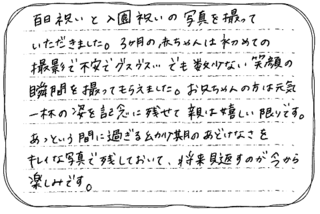 百日祝いと入園祝いの写真を撮って
いただきました。3ヶ月の赤ちゃんは初めての
撮影で不安でグズグズ…でも数少ない笑顔の
瞬間を撮ってもらえました。お兄ちゃんの方は元気
一杯の姿を記念に残せて親は嬉しい限りです。
あっという間に過ぎる幼少期のあどけなさを
キレイな写真で残しておいて、将来見返すのが今から
楽しみです。